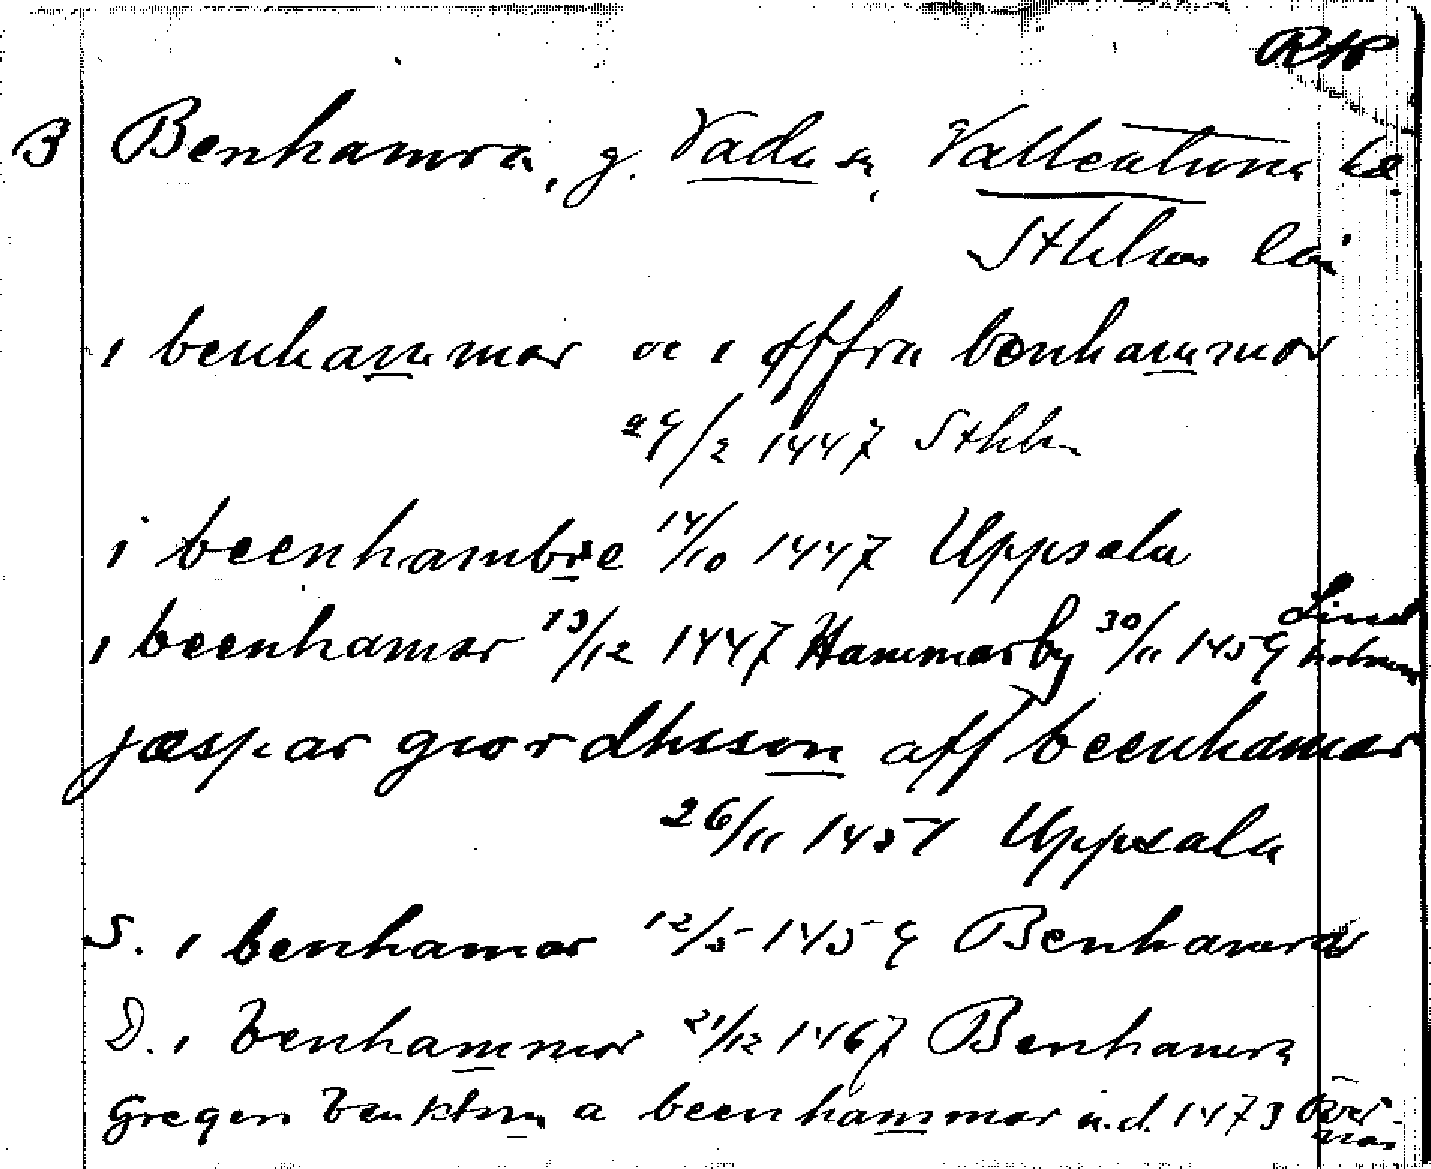 RAP
B Benhamra, g. Vada sn, Vallentuna hd.
Sthlms län
i benhammar oc i offra benhammar
29/2 1447 Sthlm
i beenhambre 14/10 1447 Uppsala
i beenhamar 13/12 1447 Hammarby 30/11 1459 Lind
holmen
jæspar giordhsson aff beenhamar
26/11 1451 Uppsala
S. i benhamar 12/5 1459 Benhamra
D. i benhammar 21/12 1467 Benhamra
Gregers a beenhammar u.d. 1473 Över-
näs